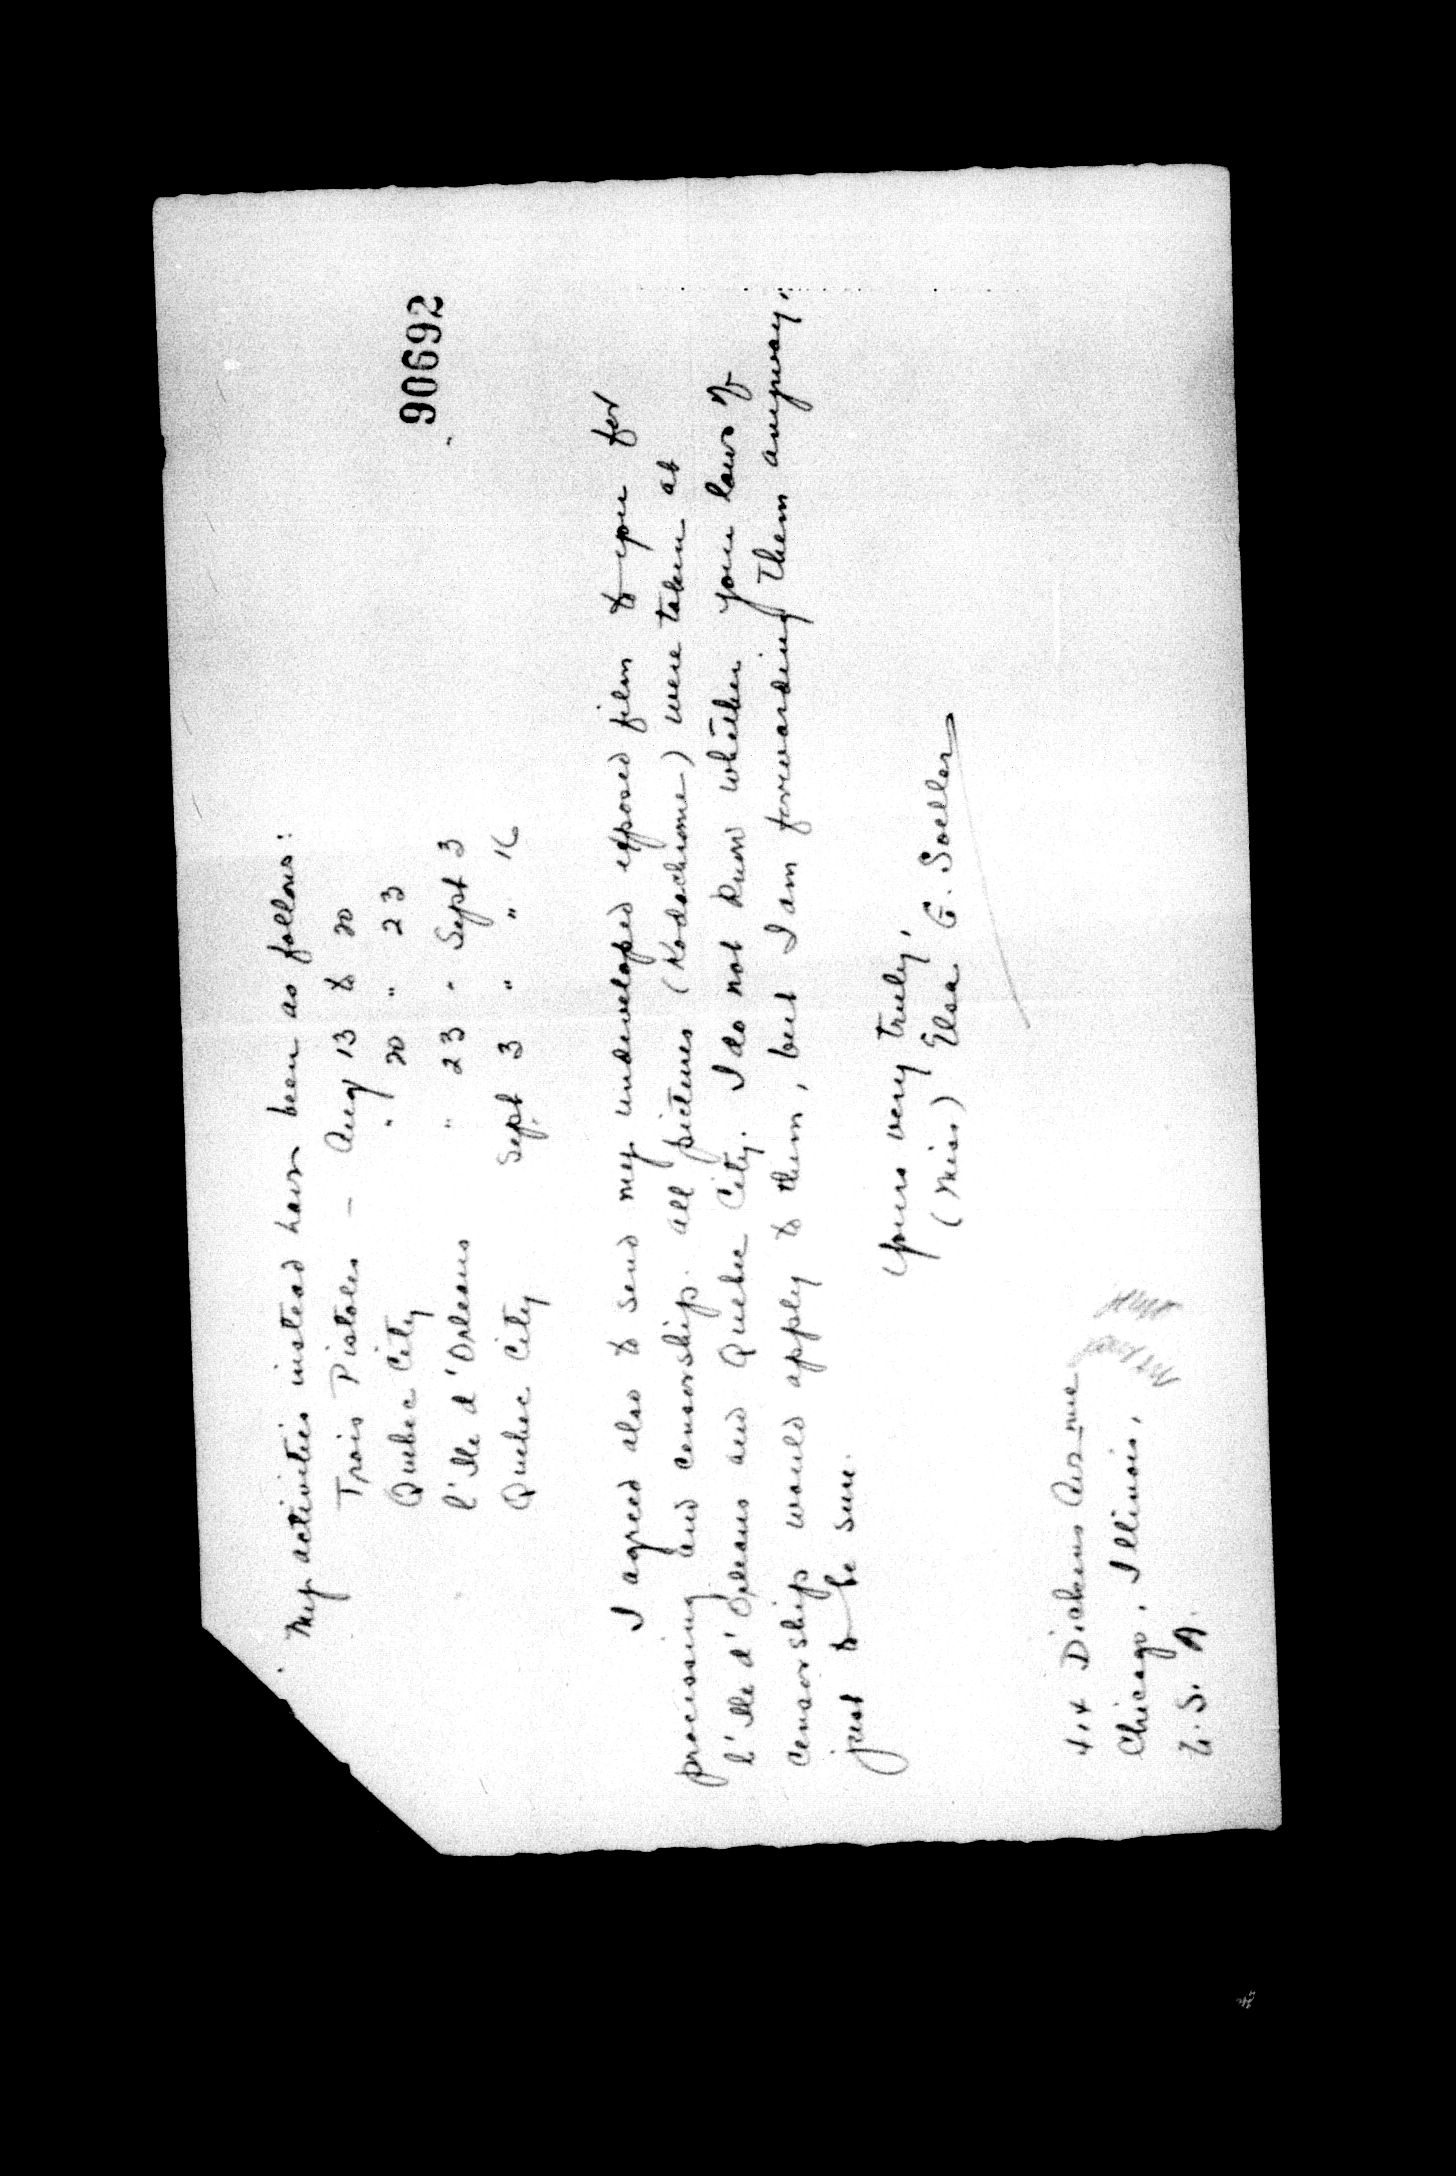 90692
My activities instead have been as follows:
Trois Pistoles - Aug 13 to 20
Quebec City " 20 " 23
l'Ile d'Orleans " 23 " Sept 3
Quebec City Sept 3 " " 16
I agreed also to send my undeveloped exposed film to you for
processing and censorship. All pictures (Kodachrome) were taken at
l'Ile d'Orleans and Quebec City. I do not know whether your laws of
censorship would apply to them, but I am forwarding them anyway,
just to be sure.
Yours very truly,
(Miss) Elsa G. Soeller
Dickens Avenue
Chicago, Illinois,
U.S.A.